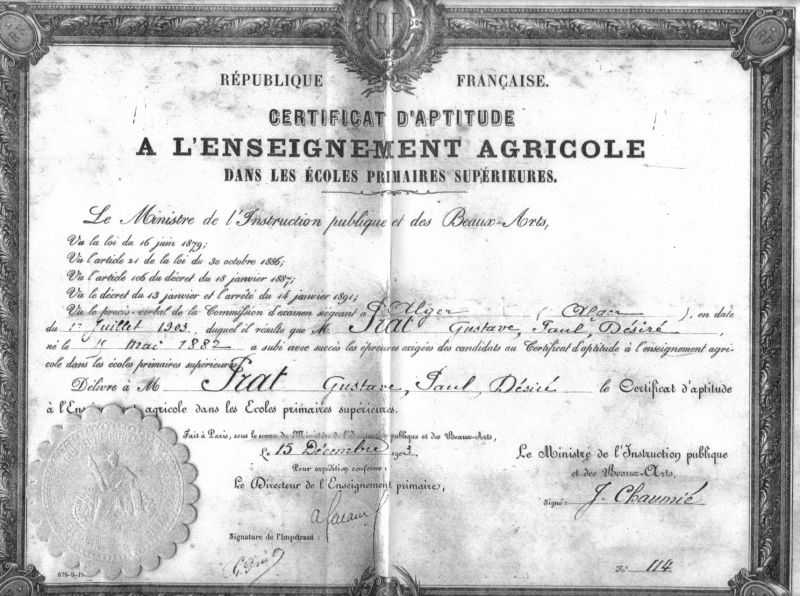 RF
RÉPUBLIQUE FRANÇAISE.
CERTIFICAT D'APTITUDE
A L'ENSEIGNEMENT AGRICOLE
DANS LES ÉCOLES PRIMAIRES SUPÉRIEURES.
Le Ministre de l'Instruction publique et des Beaux-Arts,
Vu la loi du 16 juin 1879;
Vu l'article 21 de la loi du 30 octobre 1886;
Vu l'article 106 du décret du 18 janvier 1887;
Vu le décret du 13 janvier et l'arrêté du 14 janvier 1891;
Vu le procès-verbal de la Commission d'examen siégeant à Alger ( Alger ), en date
du 1er Juillet 1903, duquel il résulte que M. Prat Gustave, Paul, Désiré,
né le mai 1882 a subi avec succès les épreuves exigées des candidats au Certificat d'aptitude à l'enseignement agri-
cole dans les écoles primaires supérieures,
Délivre à M Prat Gustave, Paul, Désiré le Certificat d'aptitude
à l'Ens agricole dans les Ecoles primaires supérieures.
Fait à Paris, sous le sceau du Ministère de l'Instruction publique et des Beaux-Arts,
Le 15 Décembre 1903.
Pour expédition conforme:
Le Directeur de l'Enseignement primaire,
Le Ministre de l'Instruction publique
et des Beaux-Arts,
Signé: J. Chaumié
Signature de l'Impétrant:
N° 114